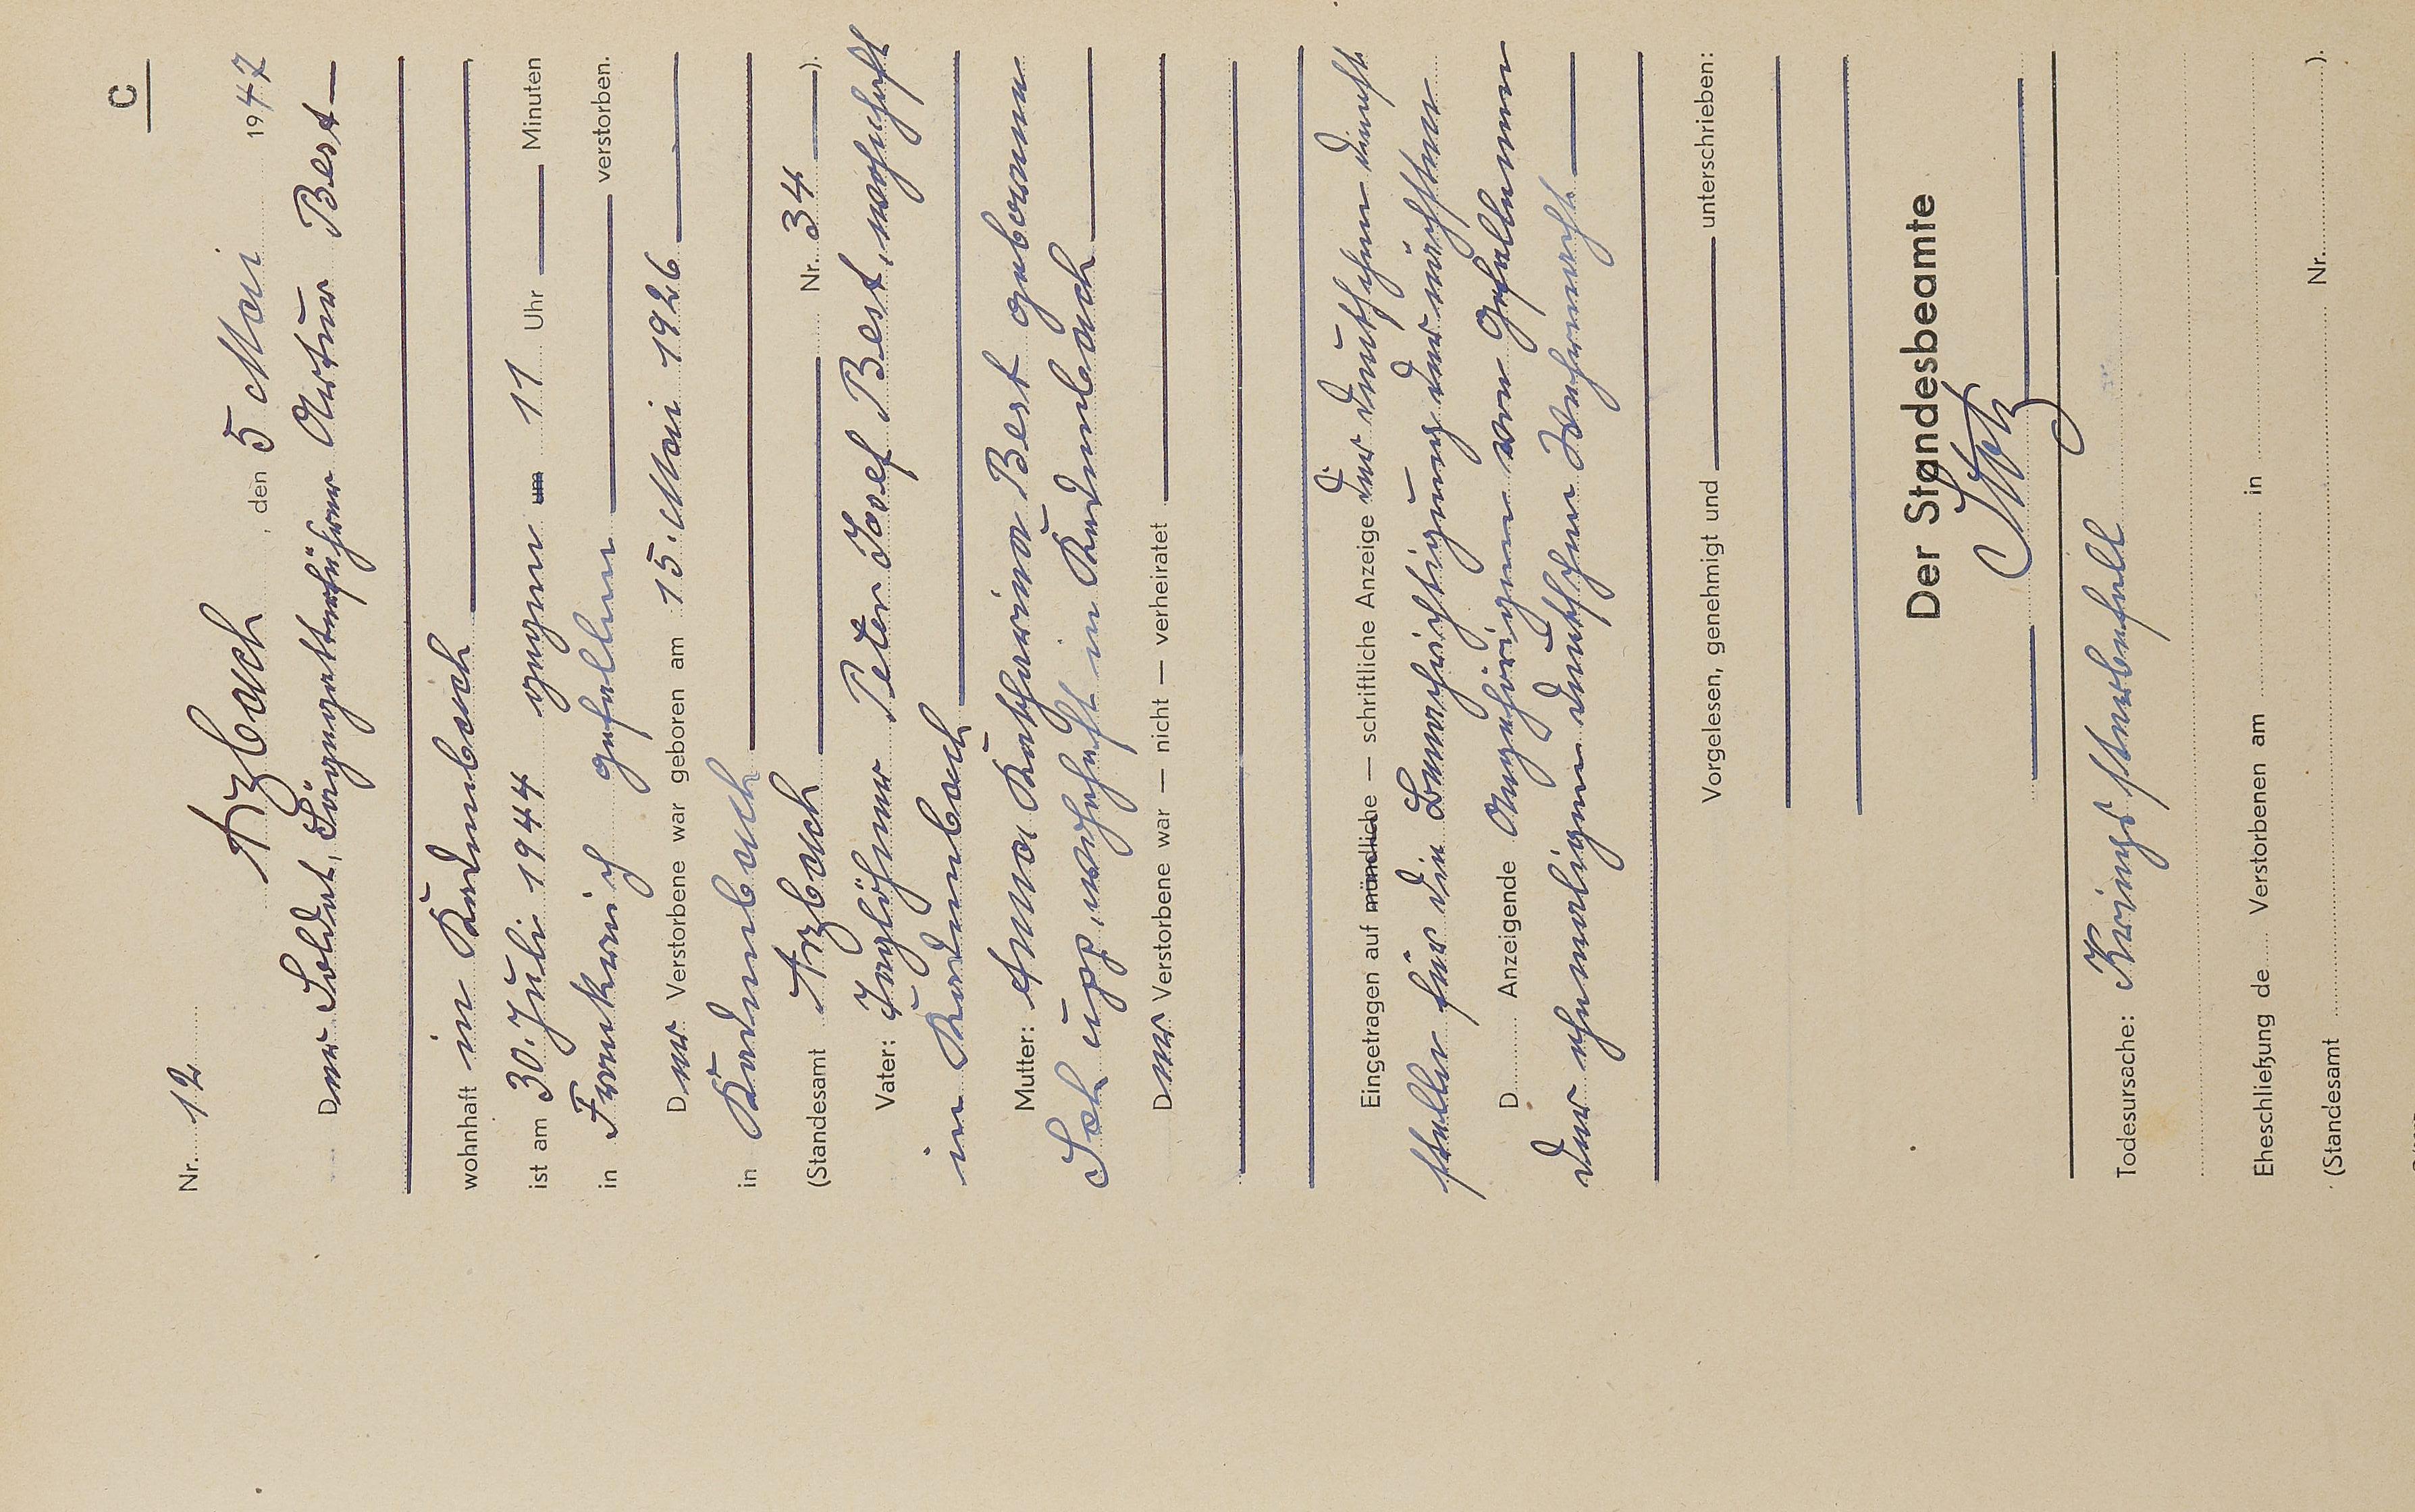 C
Nr. 12
Arzbach, den 5 Mai 1947
Der Soldat, Sägegatterführer Artur Best —
wohnhaft in Kadenbach
ist am 30. Juli 1944 gegen um 11 Uhr — Minuten
in Frankreich gefallen — verstorben.
Der Verstorbene war geboren am 15. Mai 1926 —
in Kadenbach
(Standesamt Arzbach — Nr. 34 —).
Vater: Taglöhner Peter Josef Best, wohnhaft
in Kadenbach
Mutter: Anna Katharina Best geborene
Schupp, wohnhaft in Kadenbach —
Der Verstorbene war — nicht — verheiratet
Eingetragen auf mündliche — schriftliche Anzeige der Deutschen Dienst
stelle für die Benachrichtigung der nächsten
D Anzeigende Angehörigen von Gefallenen
der ehemaligen deutschen Wehrmacht —
Vorgelesen, genehmigt und — unterschrieben:
Der Standesbeamte
Todesursache: Kriegssterbefall
Eheschließung de Verstorbenen am in
(Standesamt Nr. ).